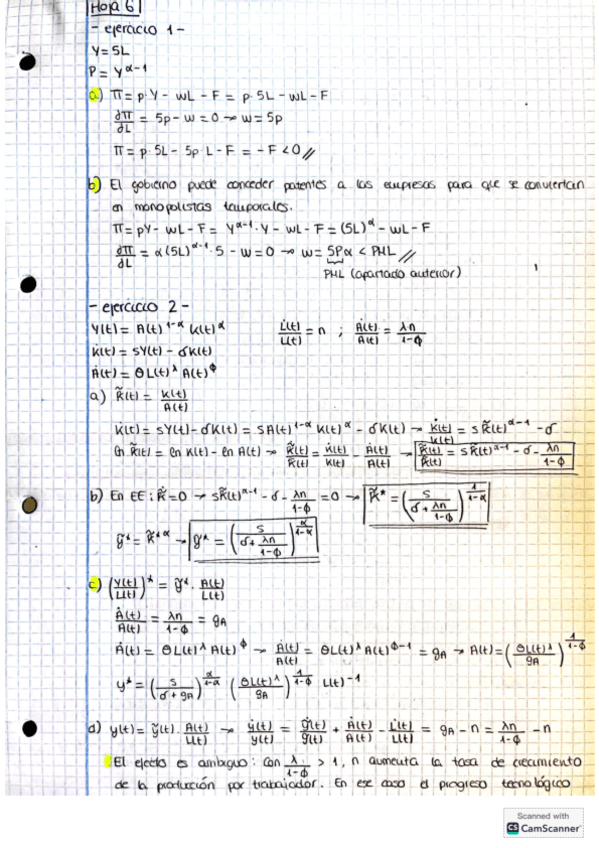 Hoja 6
- ejercicio 1 -
Y = 5L
P = Y^α-1
a) Π = p·Y - wL - F = p·5L - wL - F
∂Π/∂L = 5p - w = 0 → w = 5p
Π = p·5L - 5p·L - F = -F < 0 //
b) El gobierno puede conceder patentes a las empresas para que se conviertan
en monopolistas temporales.
Π = pY - wL - F = Y^α-1·Y - wL - F = (5L)^α - wL - F
∂Π/∂L = α(5L)^α-1·5 - w = 0 → w = 5Pα < PML //
PML (apartado anterior)
- ejercicio 2 -
Y(t) = A(t)^1-α K(t)^α    L̇(t)/L(t) = n ; Ȧ(t)/A(t) = λn/1-ϕ
K̇(t) = sY(t) - δK(t)
Ȧ(t) = θL(t)^λ A(t)^ϕ
a) K̃(t) = K(t)/A(t)
K̇(t) = sY(t) - δK(t) = sA(t)^1-α K(t)^α - δK(t) → K̇(t)/K(t) = sK̃(t)^α-1 - δ
ln K̃(t) = ln K(t) - ln A(t) → K̃̇(t)/K̃(t) = K̇(t)/K(t) - Ȧ(t)/A(t) → K̃̇(t)/K̃(t) = sK̃(t)^α-1 - δ - λn/1-ϕ
b) En EE: K̃̇ = 0 → sK̃(t)^α-1 - δ - λn/1-ϕ = 0 → K̃* = (s/δ + λn/1-ϕ)^1/1-α
ỹ* = K̃*^α → ỹ* = (s/δ + λn/1-ϕ)^α/1-α
c) (Y(t)/L(t))* = ỹ*·A(t)/L(t)
Ȧ(t)/A(t) = λn/1-ϕ = gA
Ȧ(t) = θL(t)^λ A(t)^ϕ → Ȧ(t)/A(t) = θL(t)^λ A(t)^ϕ-1 = gA → A(t) = (θL(t)^λ/gA)^1/1-ϕ
y* = (s/δ + gA)^α/1-α (θL(t)^λ/gA)^1/1-ϕ L(t)^-1
d) y(t) = ỹ(t)·A(t)/L(t) → ẏ(t)/y(t) = ỹ̇(t)/ỹ(t) + Ȧ(t)/A(t) - L̇(t)/L(t) = gA - n = λn/1-ϕ - n
El efecto es ambiguo: con λ/1-ϕ > 1, n aumenta la tasa de crecimiento
de la producción por trabajador. En ese caso el progreso tecnológico
Scanned with
CS CamScanner